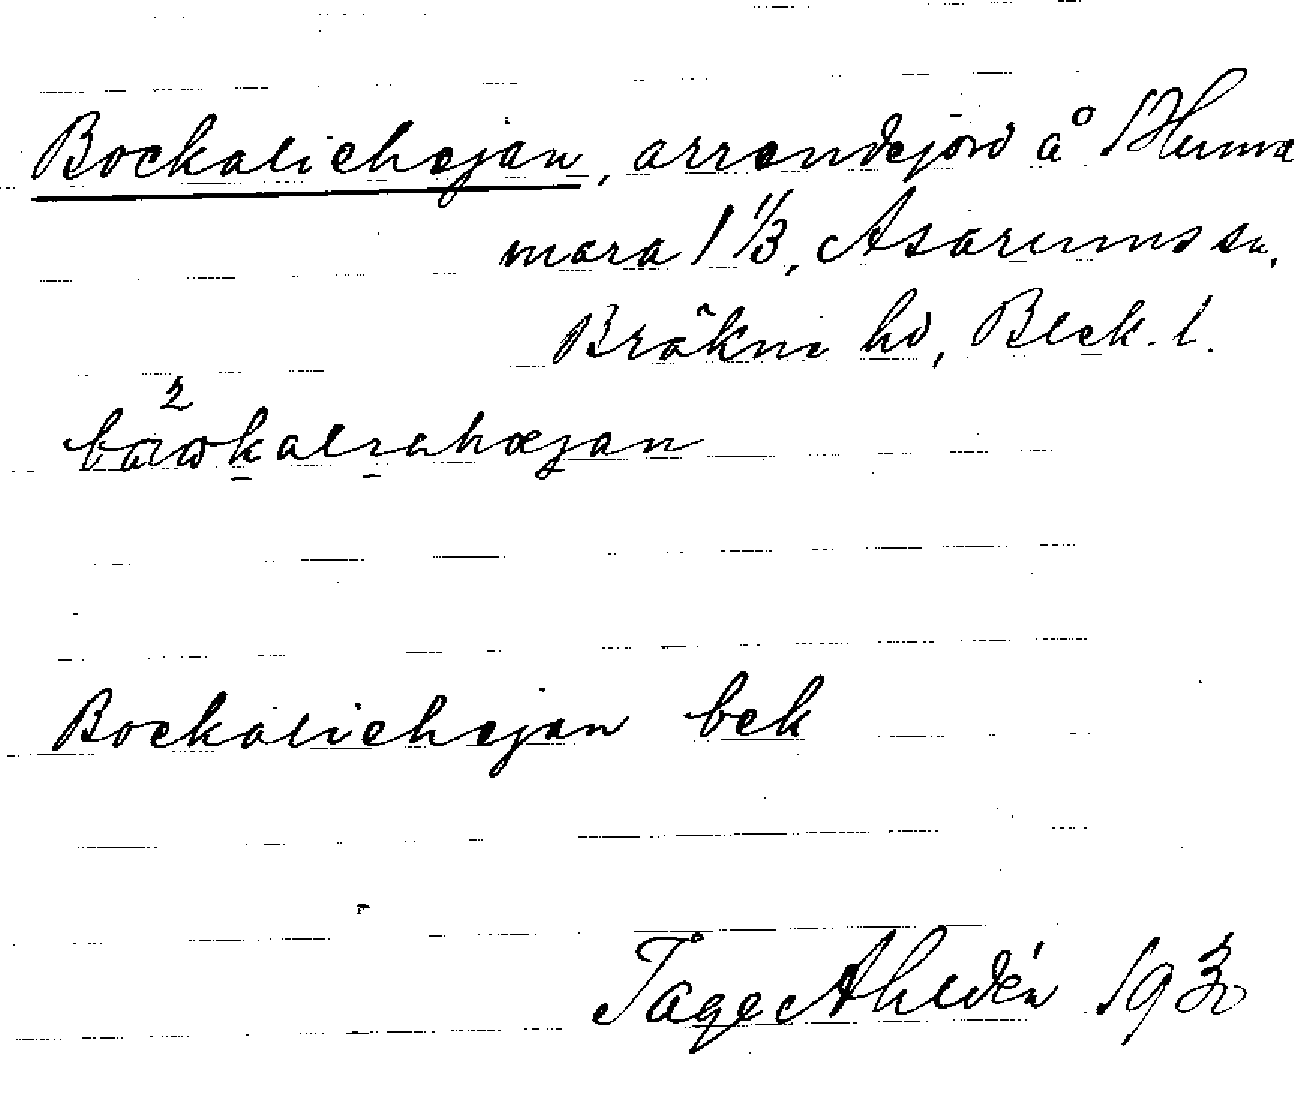 Bockaliehejan, arrendejord å Hunna
mara 1 1/3, Asarums sn,
Bräkne hd, Blek. l.
Bockaliehejan bek
Tåge Ahldén 1930